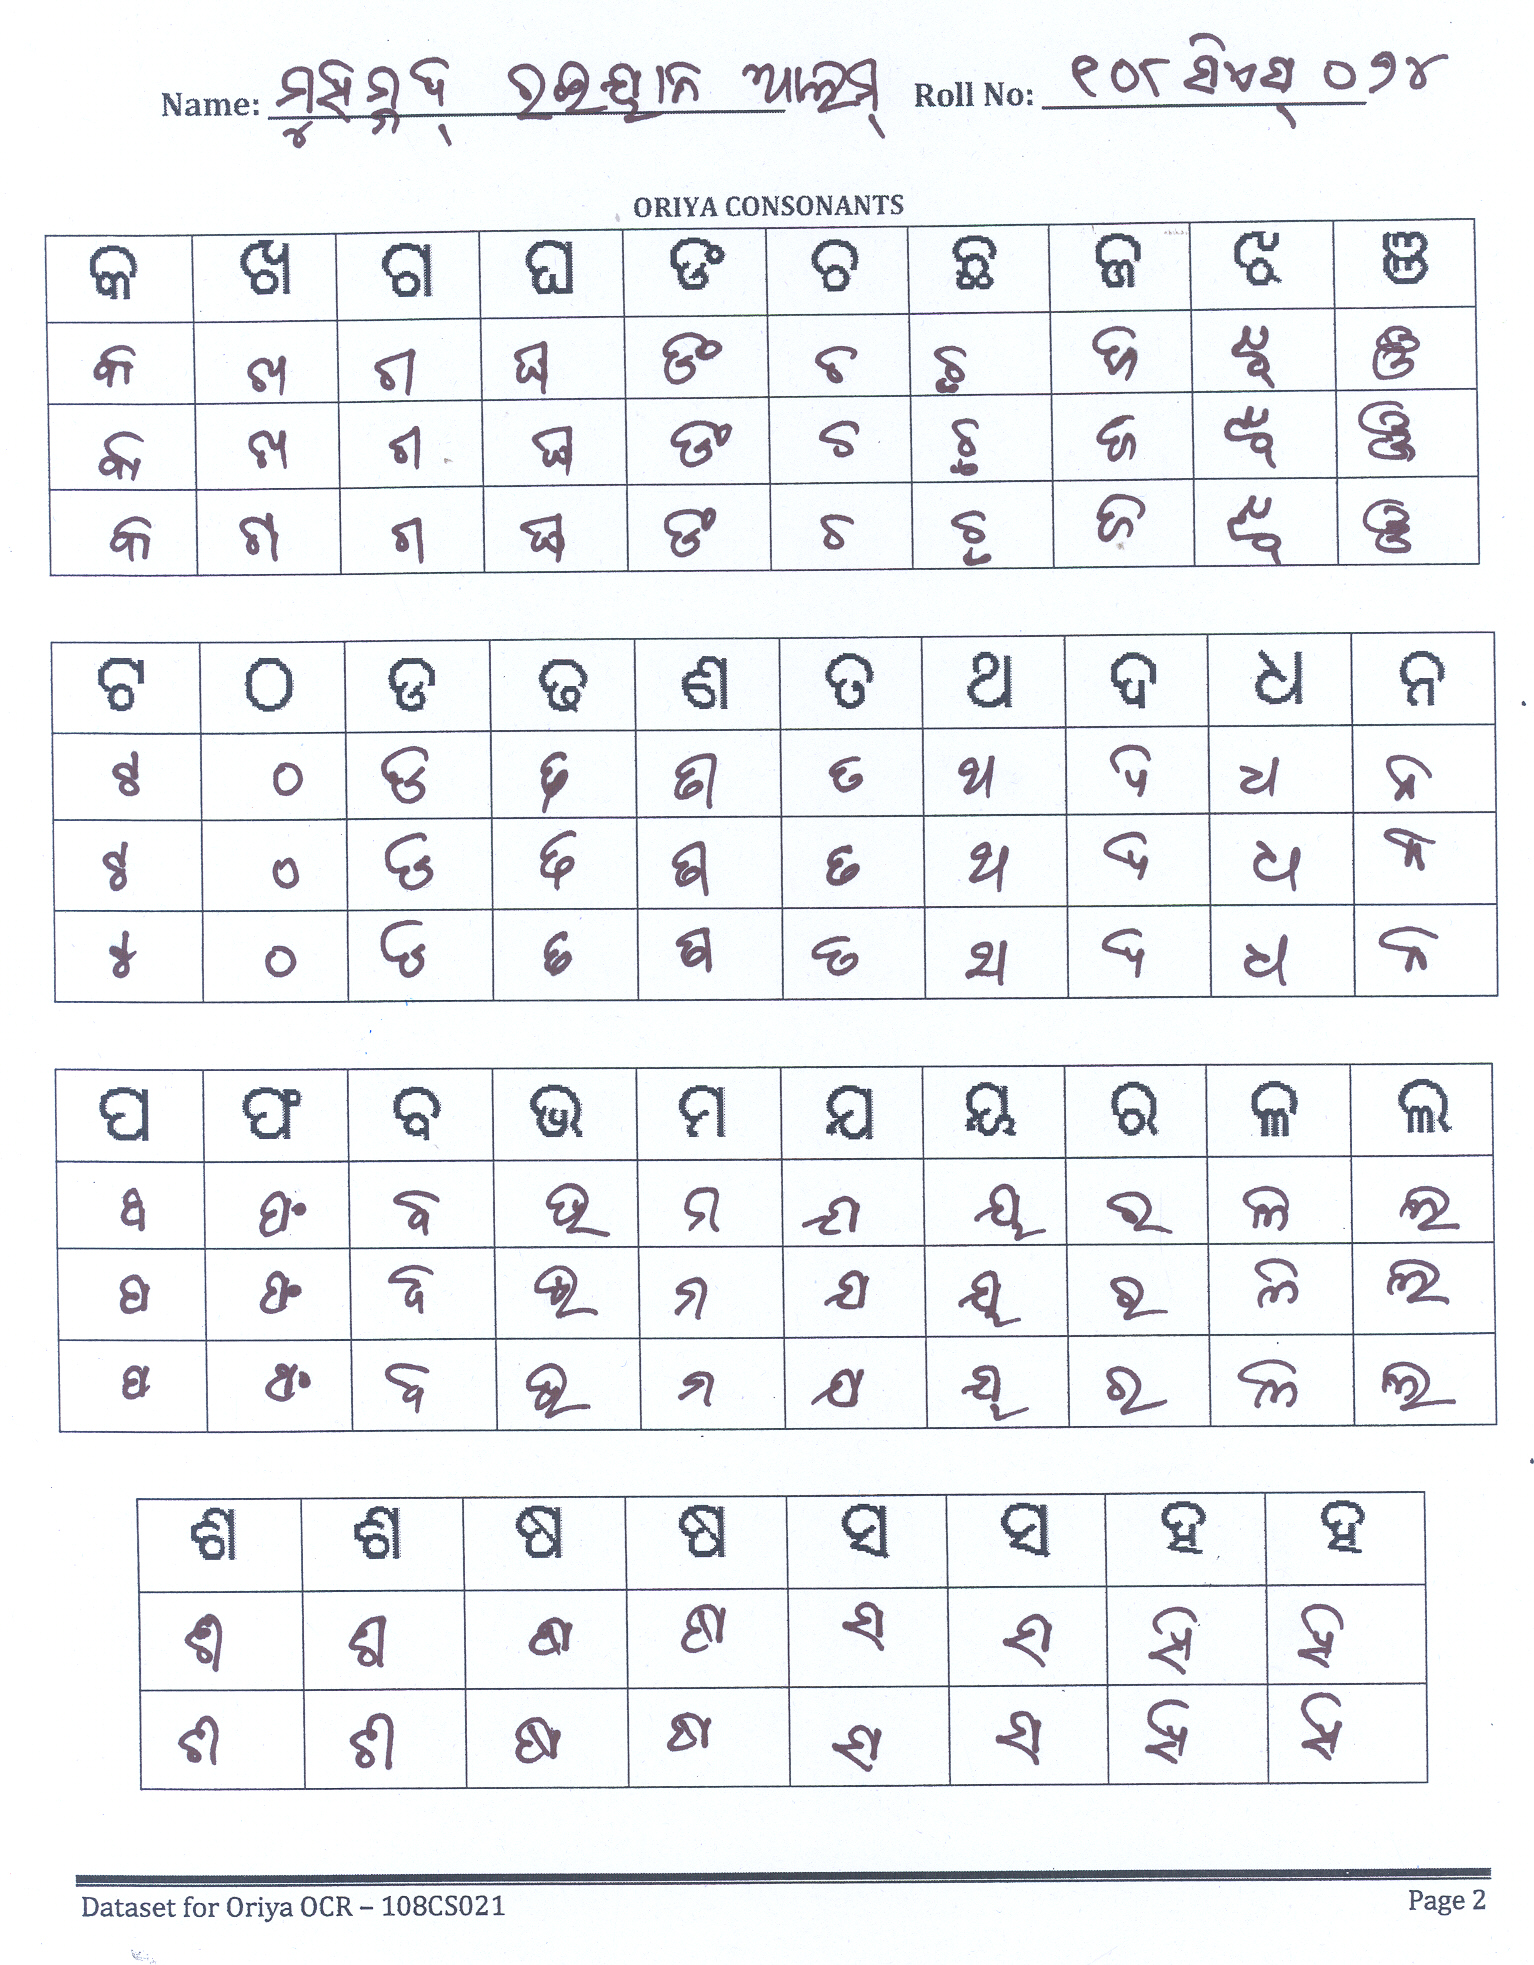 Name: ମୁହମ୍ମଦ୍ ରଇୟାନ ଆଲମ୍ Roll No: ୧୦୮ ସିଏସ୍ ୦୭୪
ORIYA CONSONANTS
କ ଖ ଗ ଘ ଙ ଚ ଛ ଜ ଝ ଞ
କ ଖ ଗ ଘ ଙ ଚ ଛ ଜ ଝ ଞ
କ ଖ ଗ ଘ ଙ ଚ ଛ ଜ ଝ ଞ
କ ଖ ଗ ଘ ଙ ଚ ଛ ଜ ଝ ଞ
ଟ ଠ ଡ ଢ ଣ ତ ଥ ଦ ଧ ନ
ଟ ଠ ଡ ଢ ଣ ତ ଥ ଦ ଧ ନ
ଟ ଠ ଡ ଢ ଣ ତ ଥ ଦ ଧ ନ
ଟ ଠ ଡ ଢ ଣ ତ ଥ ଦ ଧ ନ
ପ ଫ ବ ଭ ମ ଯ ୟ ର ଳ ଲ
ପ ଫ ବ ଭ ମ ଯ ୟ ର ଳ ଲ
ପ ଫ ବ ଭ ମ ଯ ୟ ର ଳ ଲ
ପ ଫ ବ ଭ ମ ଯ ୟ ର ଳ ଲ
ଶ ଶ ଷ ଷ ସ ସ ହ ହ
ଶ ଶ ଷ ଷ ସ ସ ହ ହ
ଶ ଶ ଷ ଷ ସ ସ ହ ହ
Dataset for Oriya OCR – 108CS021 Page 2